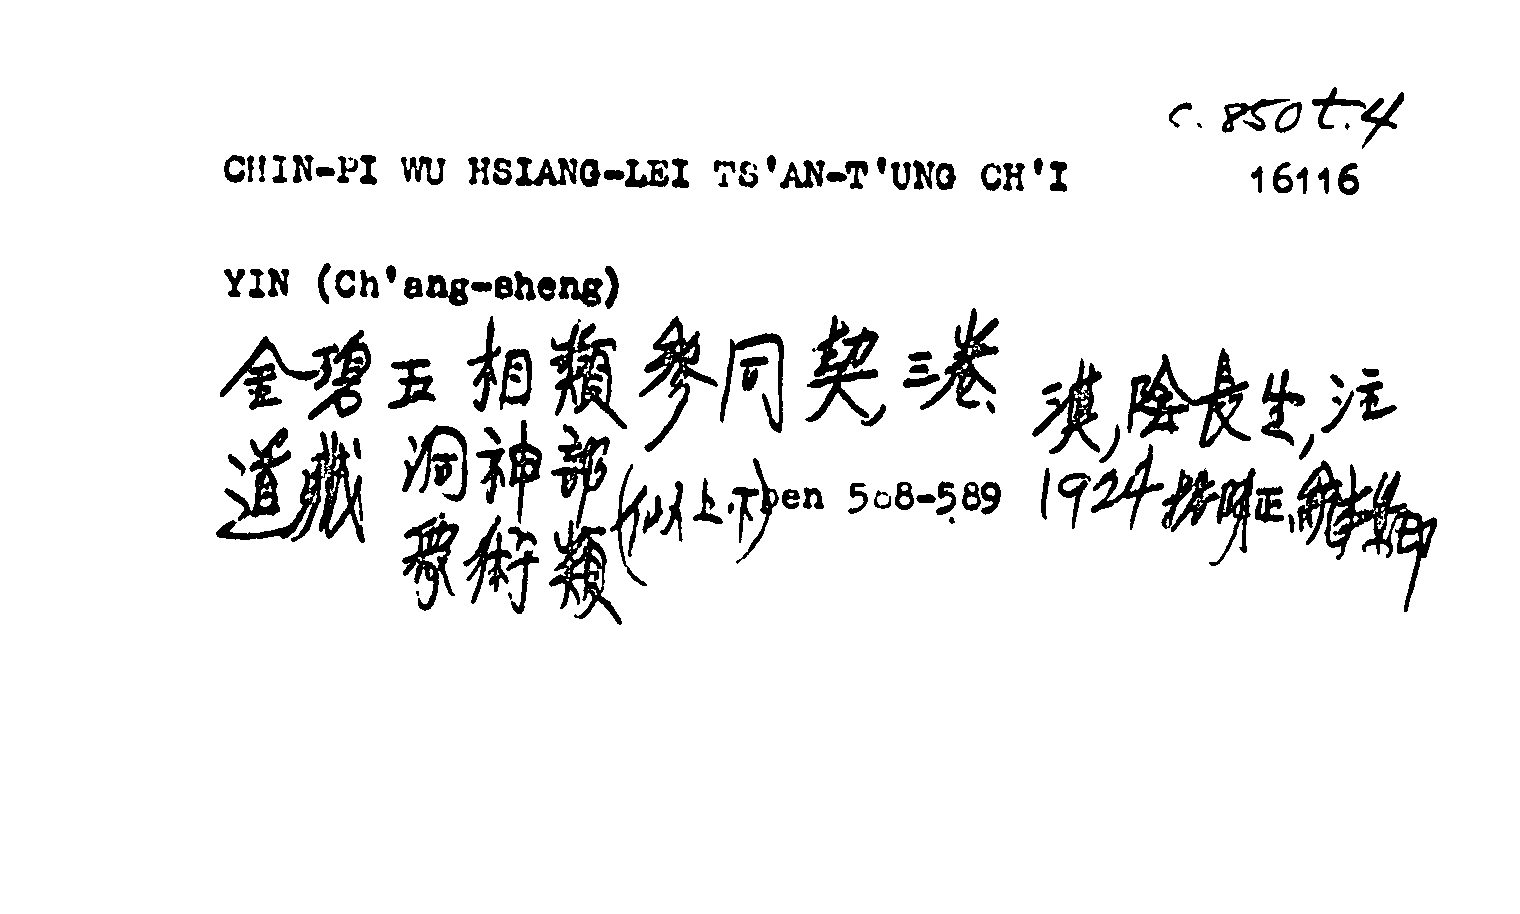 c. 850 t.4
CHIN-PI WU HSIANG-LEI TS'AN-T'UNG CH'I 16116
YIN (Ch'ang-sheng)
金碧五相類參同契,三卷、 漢,陰長生,注
道藏 洞神部 (似上.下)pen 508-589 1924 據明正統本影印
衆術類